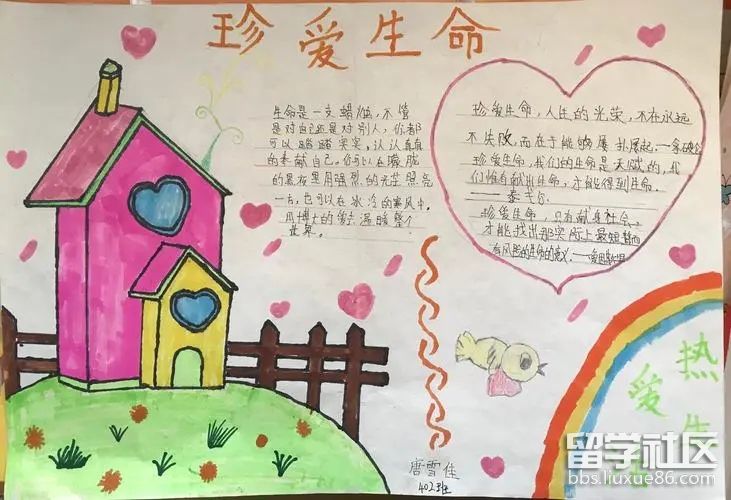 珍爱生命
生命是一支蜡烛,不管
是对自己还是对别人,你都
可以踏踏实实,认认真真
的奉献自己。你可以在朦胧
的黑夜里用强烈的光芒照亮
一方,也可以在冰冷的寒风中,
用博大的爱心温暖整个
世界。
珍爱生命,人生的光荣,不在永远
不失败,而在于能够屡扑屡起。——拿破仑
珍爱生命,我们的生命是天赋的,我
们惟有献出生命,才能得到生命。
泰戈尔
珍爱生命,只有献身社会,
才能找出那实际上是短暂而
有风险的生命的意义。——爱因斯坦
热爱生
唐雪佳
402班
留学社区
bbs.liuxue86.com